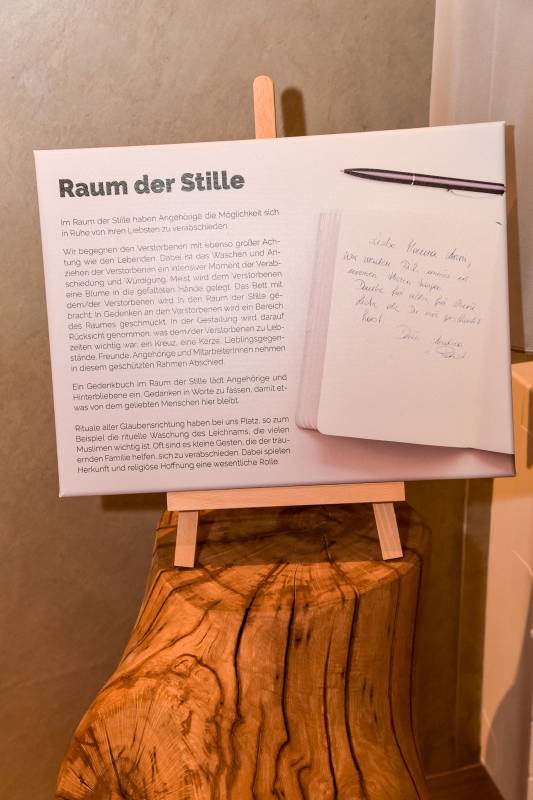 Raum der Stille
Im Raum der Stille haben Angehörige die Möglichkeit sich
in Ruhe von ihren Liebsten zu verabschieden.
Wir begegnen den Verstorbenen mit ebenso großer Ach-
tung wie den Lebenden. Dabei ist das Waschen und An-
ziehen der Verstorbenen ein intensiver Moment der Verab-
schiedung und Würdigung. Meist wird dem Verstorbenen
eine Blume in die gefalteten Hände gelegt. Das Bett mit
dem/der Verstorbenen wird in den Raum der Stille ge-
bracht. In Gedenken an den Verstorbenen wird ein Bereich
des Raumes geschmückt. In der Gestaltung wird darauf
Rücksicht genommen, was dem/der Verstorbenen zu Leb-
zeiten wichtig war: ein Kreuz, eine Kerze, Lieblingsgegen-
stände. Freunde, Angehörige und MitarbeiterInnen nehmen
in diesem geschützten Rahmen Abschied.
Ein Gedenkbuch im Raum der Stille lädt Angehörige und
Hinterbliebene ein, Gedanken in Worte zu fassen, damit et-
was von dem geliebten Menschen hier bleibt.
Rituale aller Glaubensrichtung haben bei uns Platz, so zum
Beispiel die rituelle Waschung des Leichnams, die vielen
Muslimen wichtig ist. Oft sind es kleine Gesten, die der trau-
ernden Familie helfen, sich zu verabschieden. Dabei spielen
Herkunft und religiöse Hoffnung eine wesentliche Rolle.
Liebe Mama
Danke für alles, für Deine
hast.